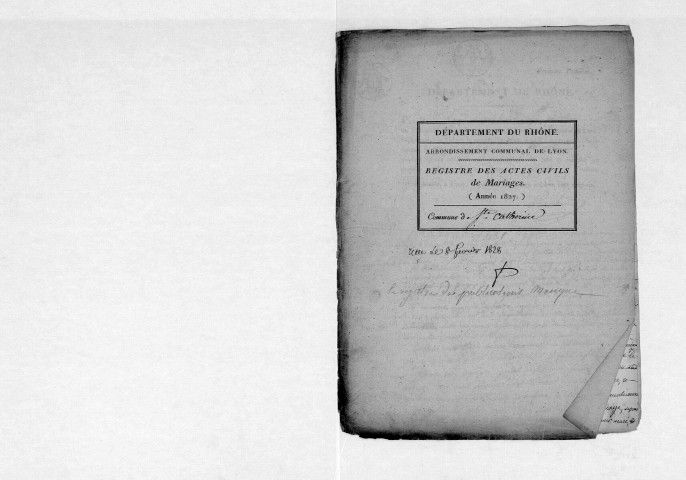 DÉPARTEMENT DU RHÔNE.
ARRONDISSEMENT COMMUNAL DE LYON.
REGISTRE DES ACTES CIVILS
de Mariages.
( Année 1827. )
Commune de Ste. Catherine
reçu le 8 février 1828
le registre des publications manque